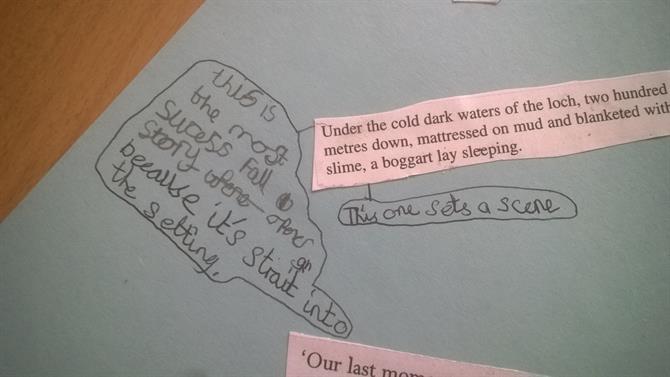 this is
the most
sucess full
story opener
because it's strait into
the setting.
Under the cold dark waters of the loch, two hundred
metres down, mattressed on mud and blanketed with
slime, a boggart lay sleeping.
This one sets a scene
'Our last mom